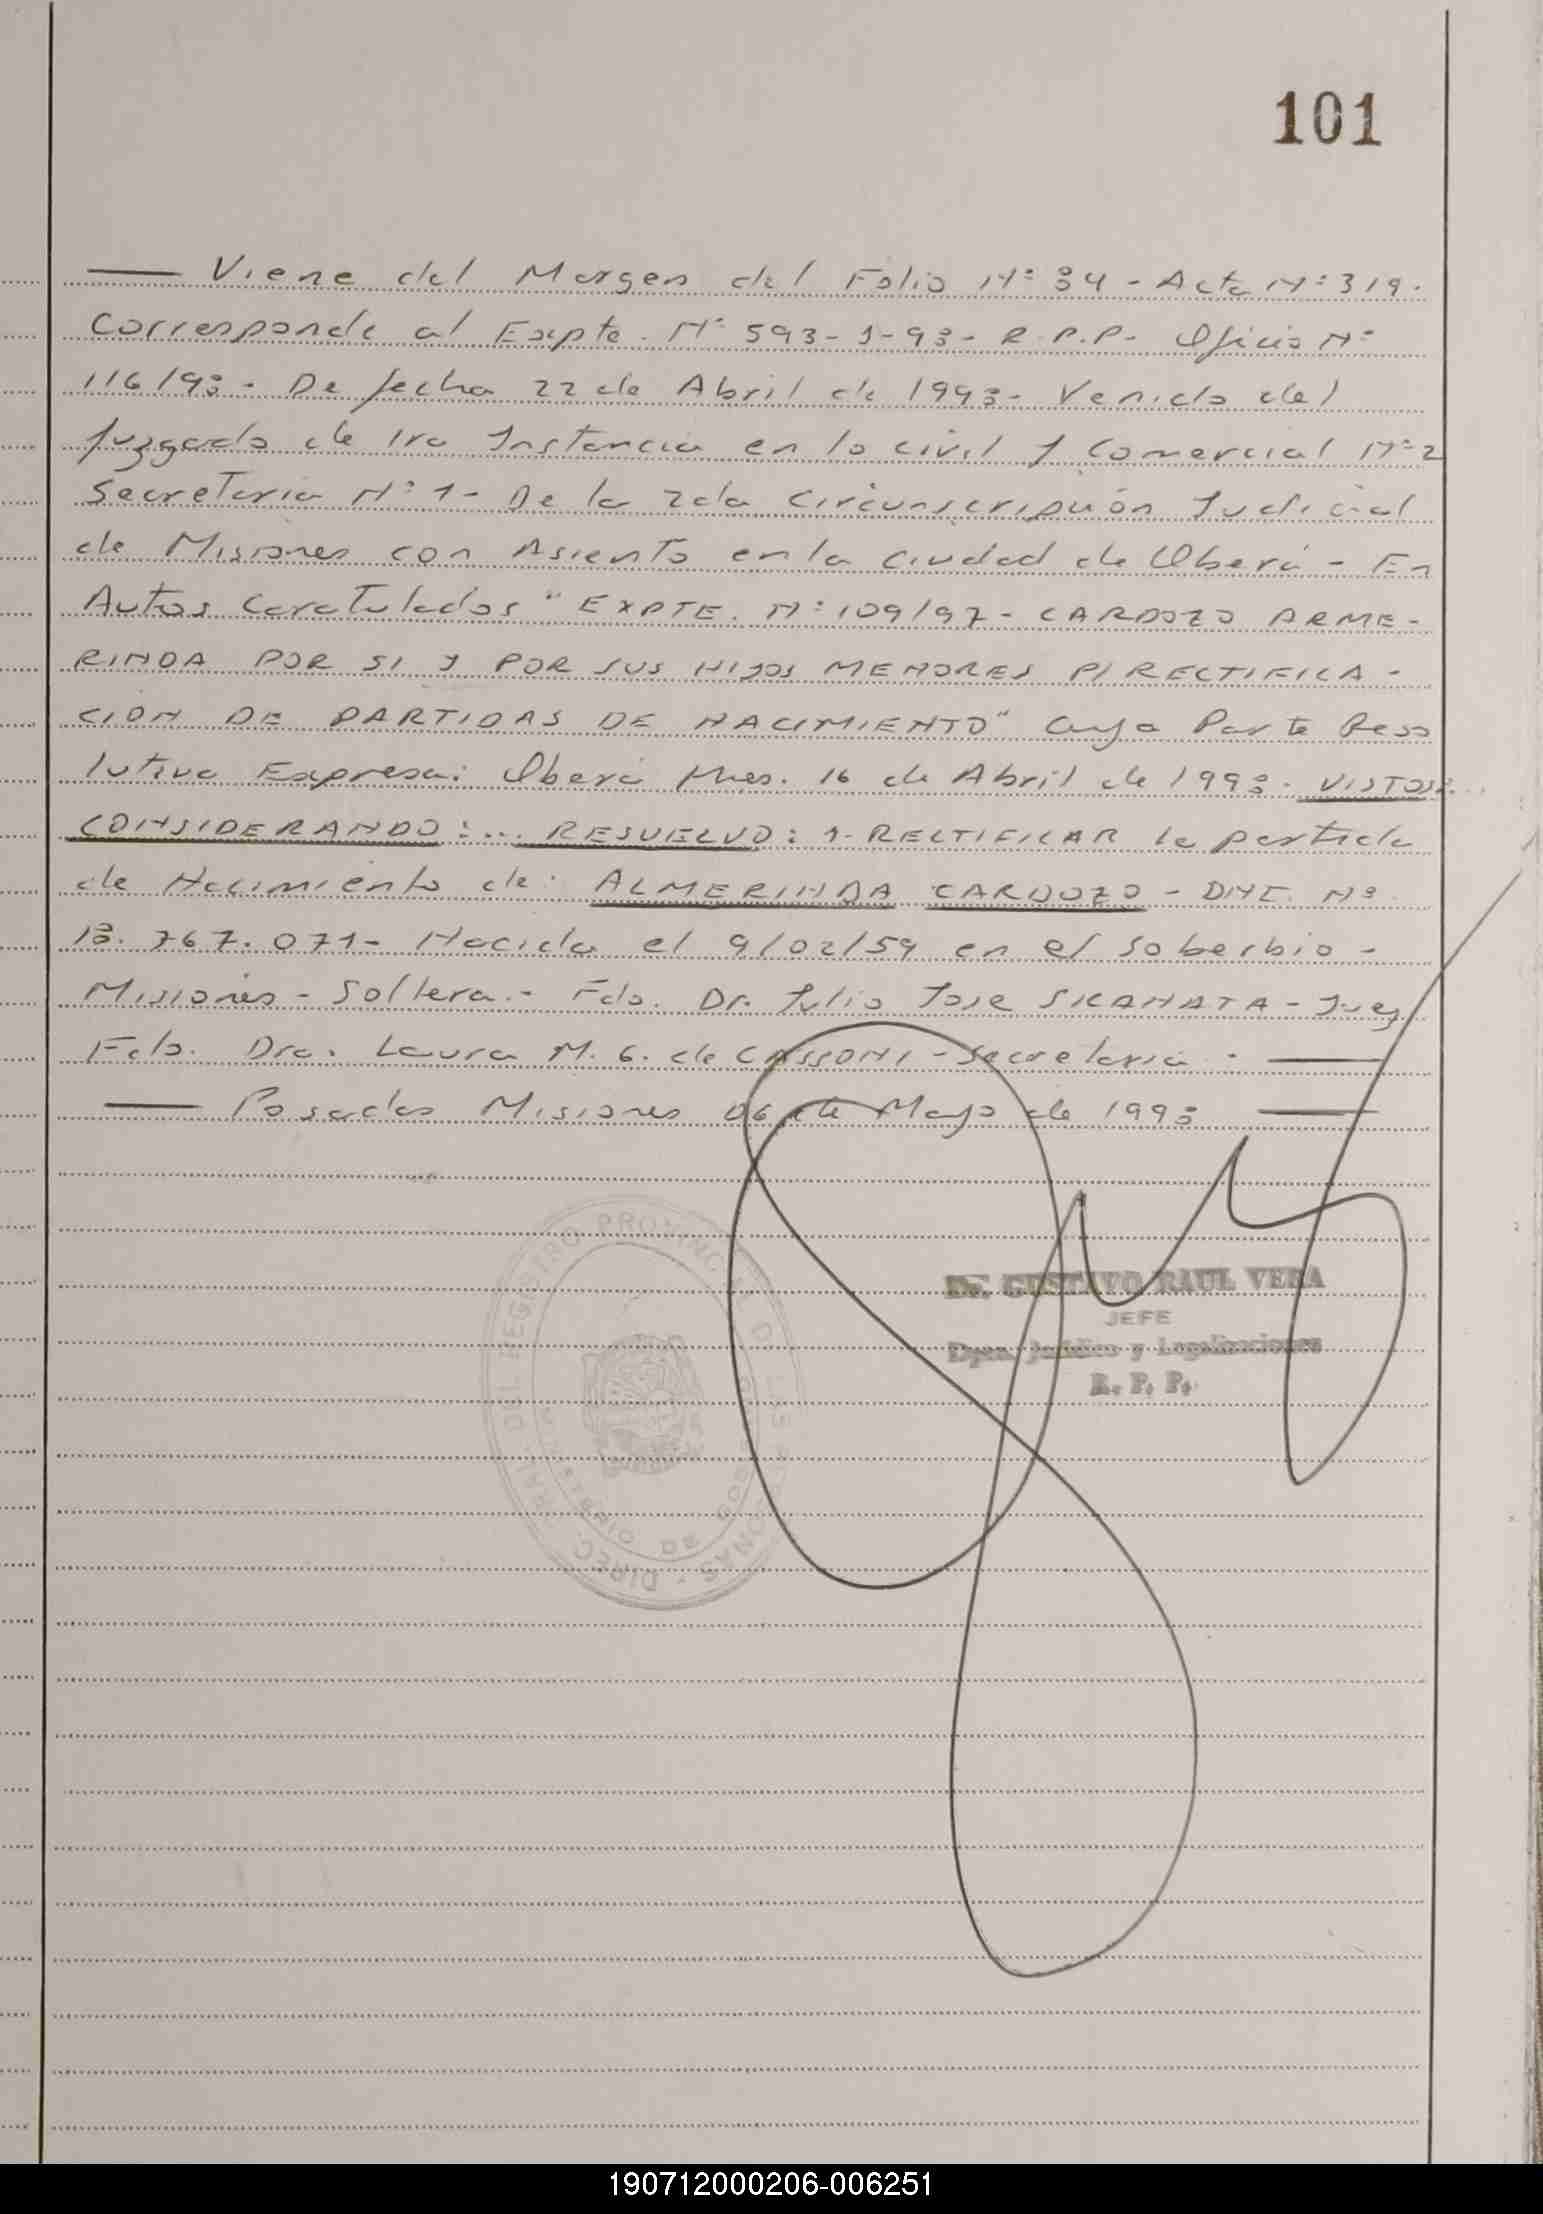 101
Viene del Margen del Folio Nº 34 - Acta Nº 319.
Corresponde al Expte. Nº 593-J-93- R.P.P- Oficio Nº
116/93- De fecha 22 de Abril de 1993- Venido del
Juzgado de 1ra Instancia en lo civil y Comercial Nº 2
Secretaria Nº 1- De la 2da Circunscripción Judicial
de Misiones con Asiento en la Ciudad de Oberá - En
Autos Caratulados "EXPTE. Nº 109/92- CARDOZO ARME-
RINDA POR SI Y POR SUS HIJOS MENORES P/ RECTIFICA-
CION DE PARTIDAS DE NACIMIENTO" Cuya Parte Reso
lutiva Expresa: Oberá Mnes. 16 de Abril de 1993. VISTOS:...
CONSIDERANDO:... RESUELVO: 1- RECTIFICAR la partida
de Nacimiento de: ALMERINDA CARDOZO - DNI. Nº
13.767.071- Nacida el 9/02/59 en el Soberbio -
Misiones - Soltera.- Fdo. Dr. Julio Jose SKANATA - Juez
Fdo. Dra. Laura M. G. de CASSONI - Secretaria.-
Posadas Misiones 06 de Mayo de 1993
DIREC. GRAL. DEL REGISTRO PROVINCIAL DE LAS PERSONAS -
MINISTERIO DE GOBIERNO
Dr. GUSTAVO RAUL VERA
JEFE
Dpto. Jurídico y Legalizaciones
R. P. P.
190712000206-006251